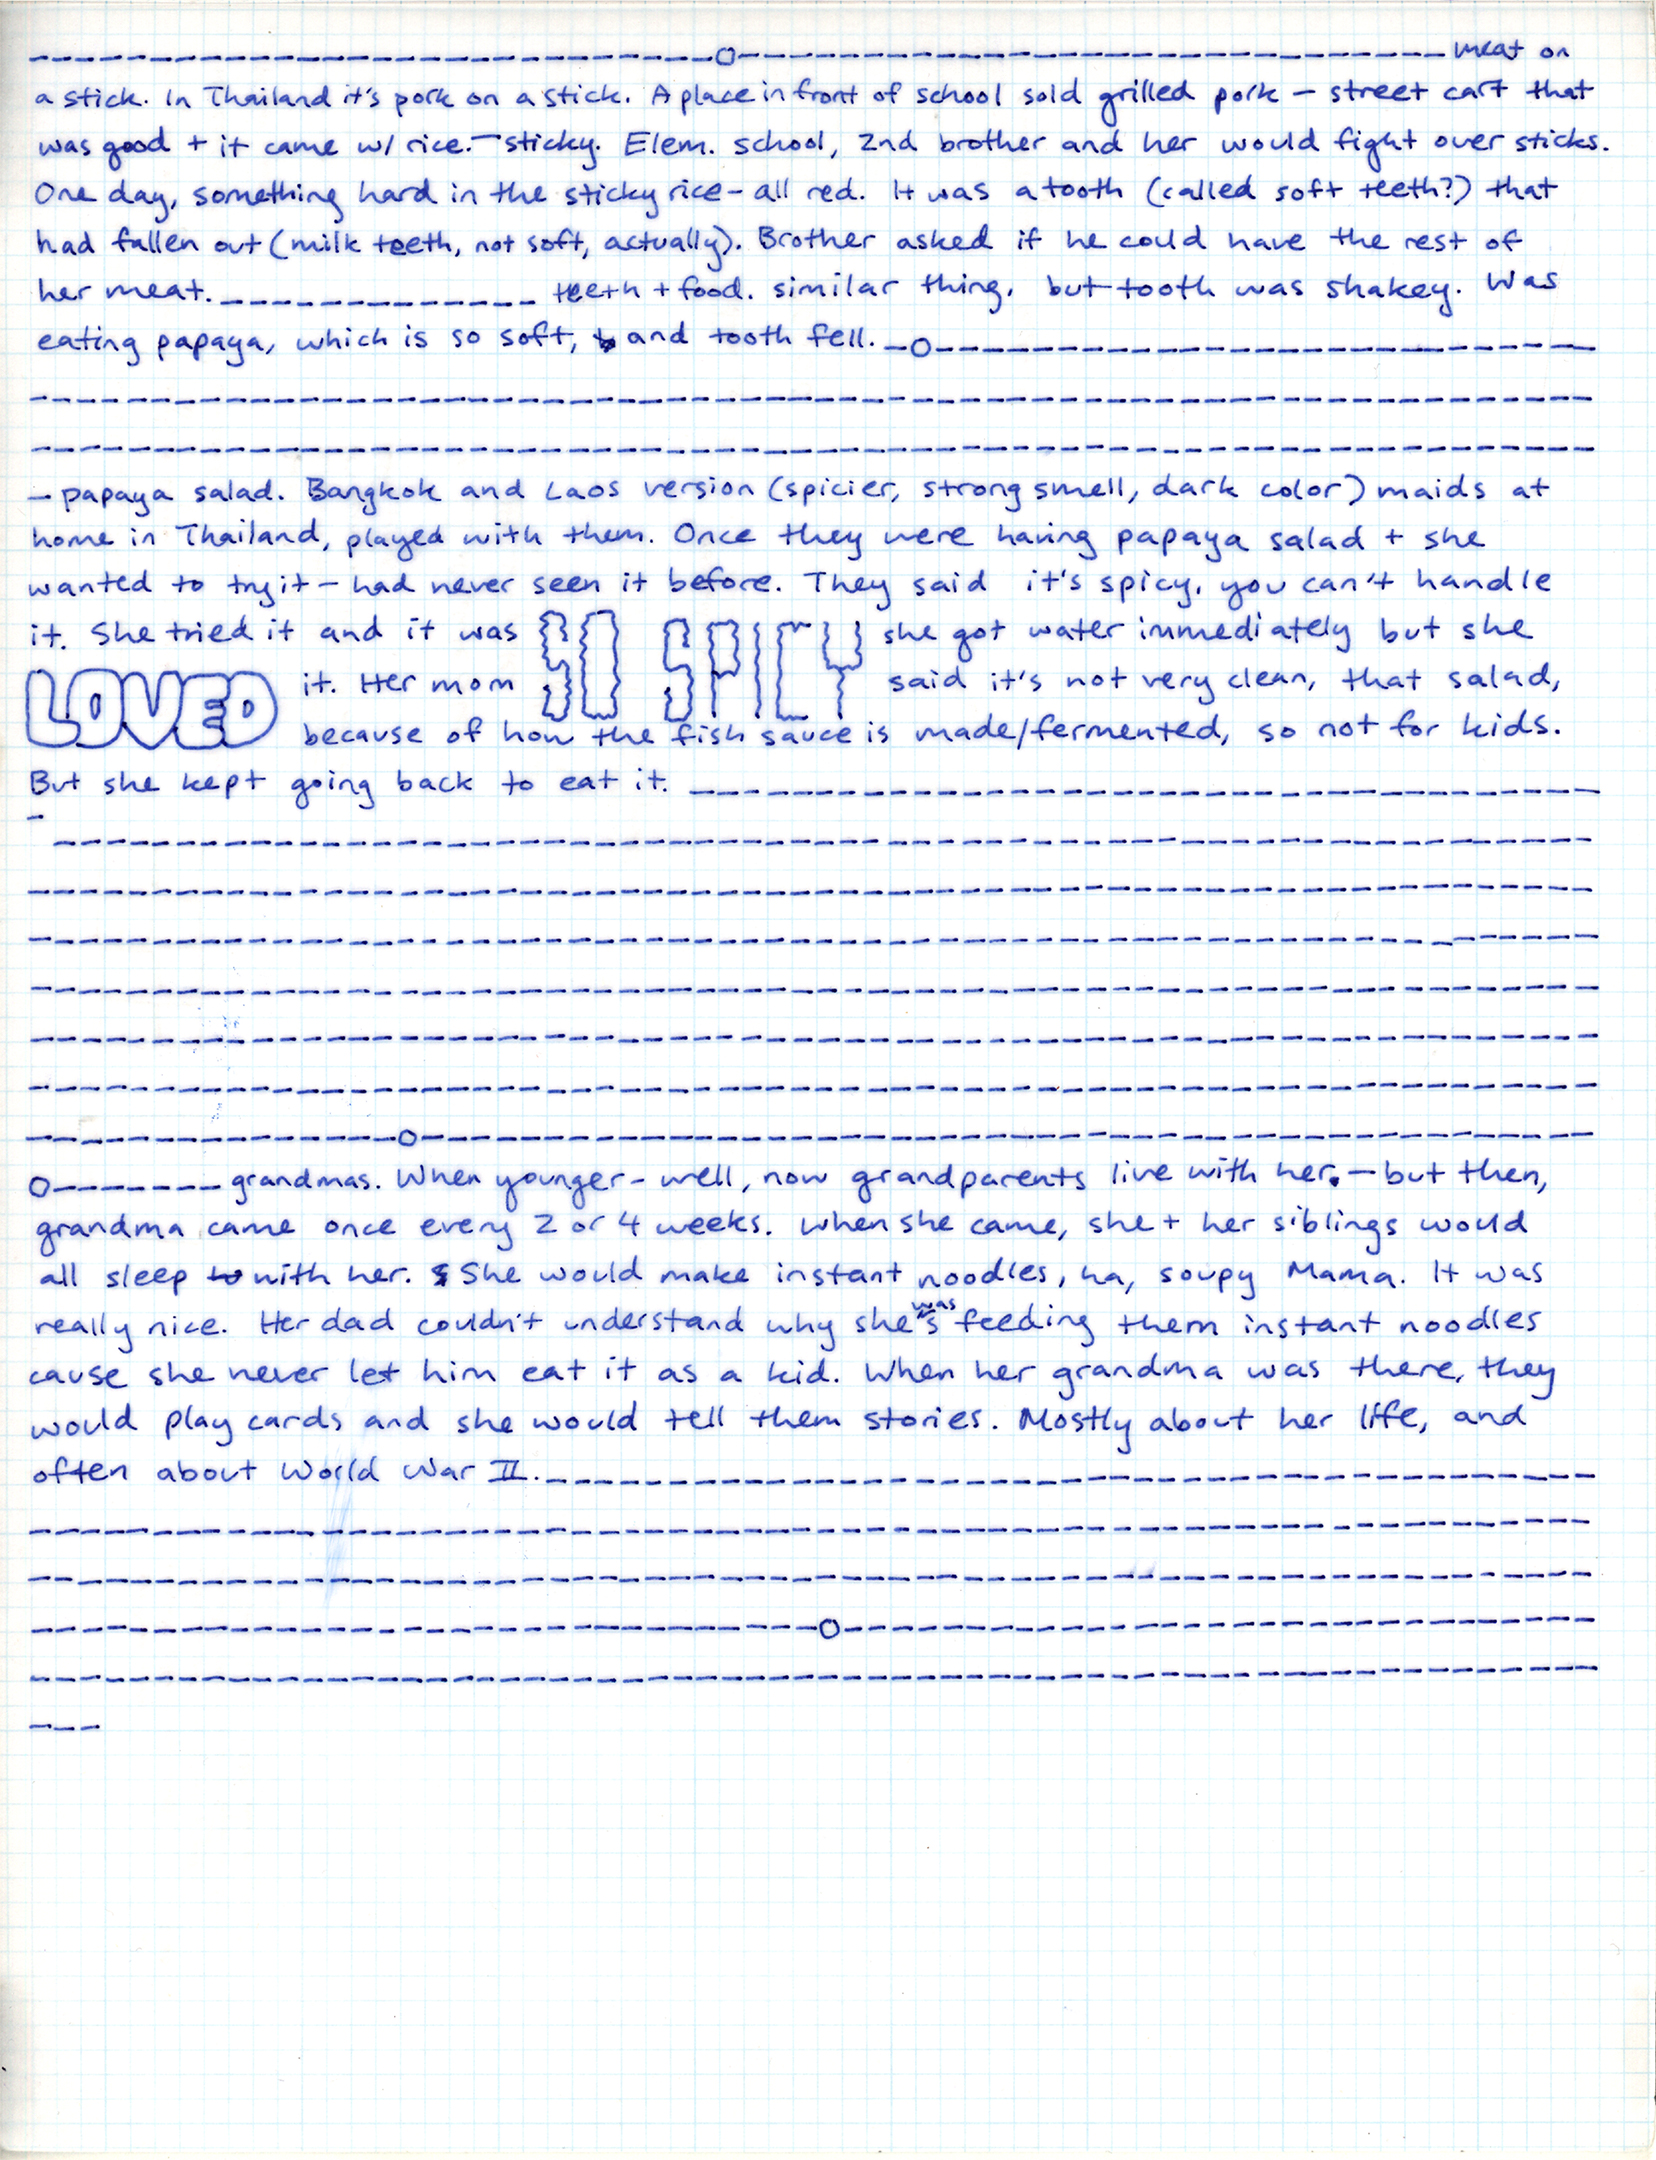 meat on
a stick. In Thailand it's pork on a stick. A place in front of school sold grilled pork – street cart that
was good + it came w/ rice. – sticky. Elem. school, 2nd brother and her would fight over sticks.
One day, something hard in the sticky rice – all red. It was a tooth (called soft teeth?) that
had fallen out (milk teeth, not soft, actually). Brother asked if he could have the rest of
her meat. teeth + food. similar thing, but tooth was shakey. Was
eating papaya, which is so soft, and tooth fell.
– papaya salad. Bangkok and Laos version (spicier, strong smell, dark color) maids at
home in Thailand, played with them. Once they were having papaya salad + she
wanted to try it – had never seen it before. They said it's spicy, you can't handle
it. She tried it and it was SO SPICY she got water immediately but she
LOVED it. Her mom said it's not very clean, that salad,
because of how the fish sauce is made/fermented, so not for kids.
But she kept going back to eat it.
grandmas. When younger – well, now grandparents live with her. – but then,
grandma came once every 2 or 4 weeks. When she came, she + her siblings would
all sleep to with her. She would make instant noodles, ha, soupy Mama. It was
really nice. Her dad couldn't understand why she's was feeding them instant noodles
cause she never let him eat it as a kid. When her grandma was there, they
would play cards and she would tell them stories. Mostly about her life, and
often about World War II.